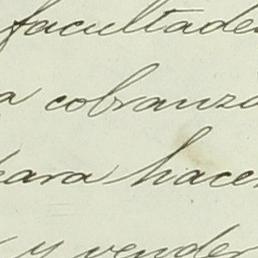 facultade
a cobranza
para hacer
y vender